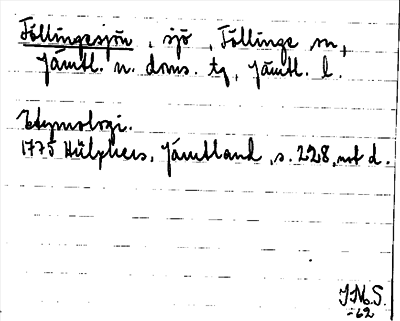 Föllingesjön, sjö, Föllinge sn,
Jämtl. n. doms. tg, Jämtl. l.
Etymologi.
1775 Hülphers, Jämtland, s. 228, not d.
J.N.S.
-62